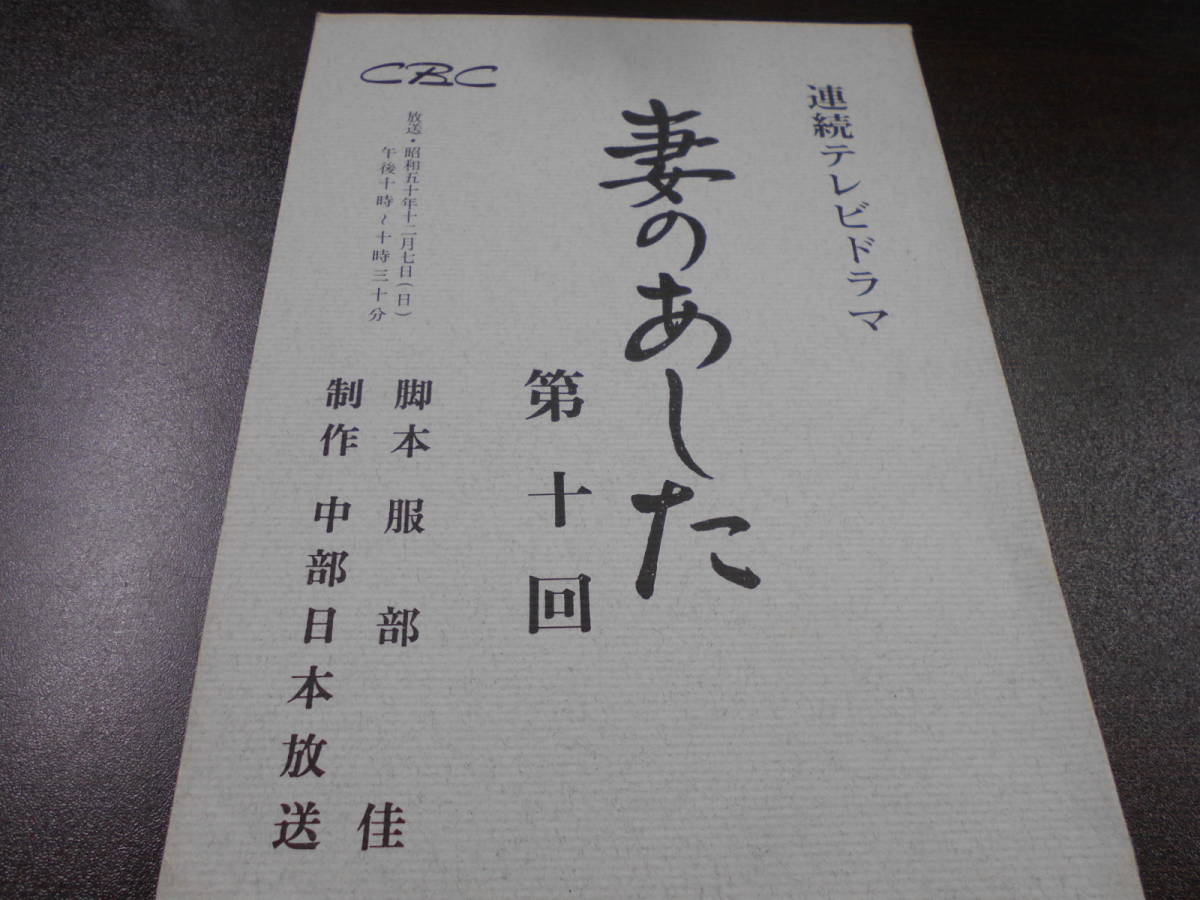 連続テレビドラマ
妻のあした
第十回
CBC
放送・昭和五十年十二月七日(日)
午後十時~十時三十分
脚本 服部 佳
制作 中部日本放送